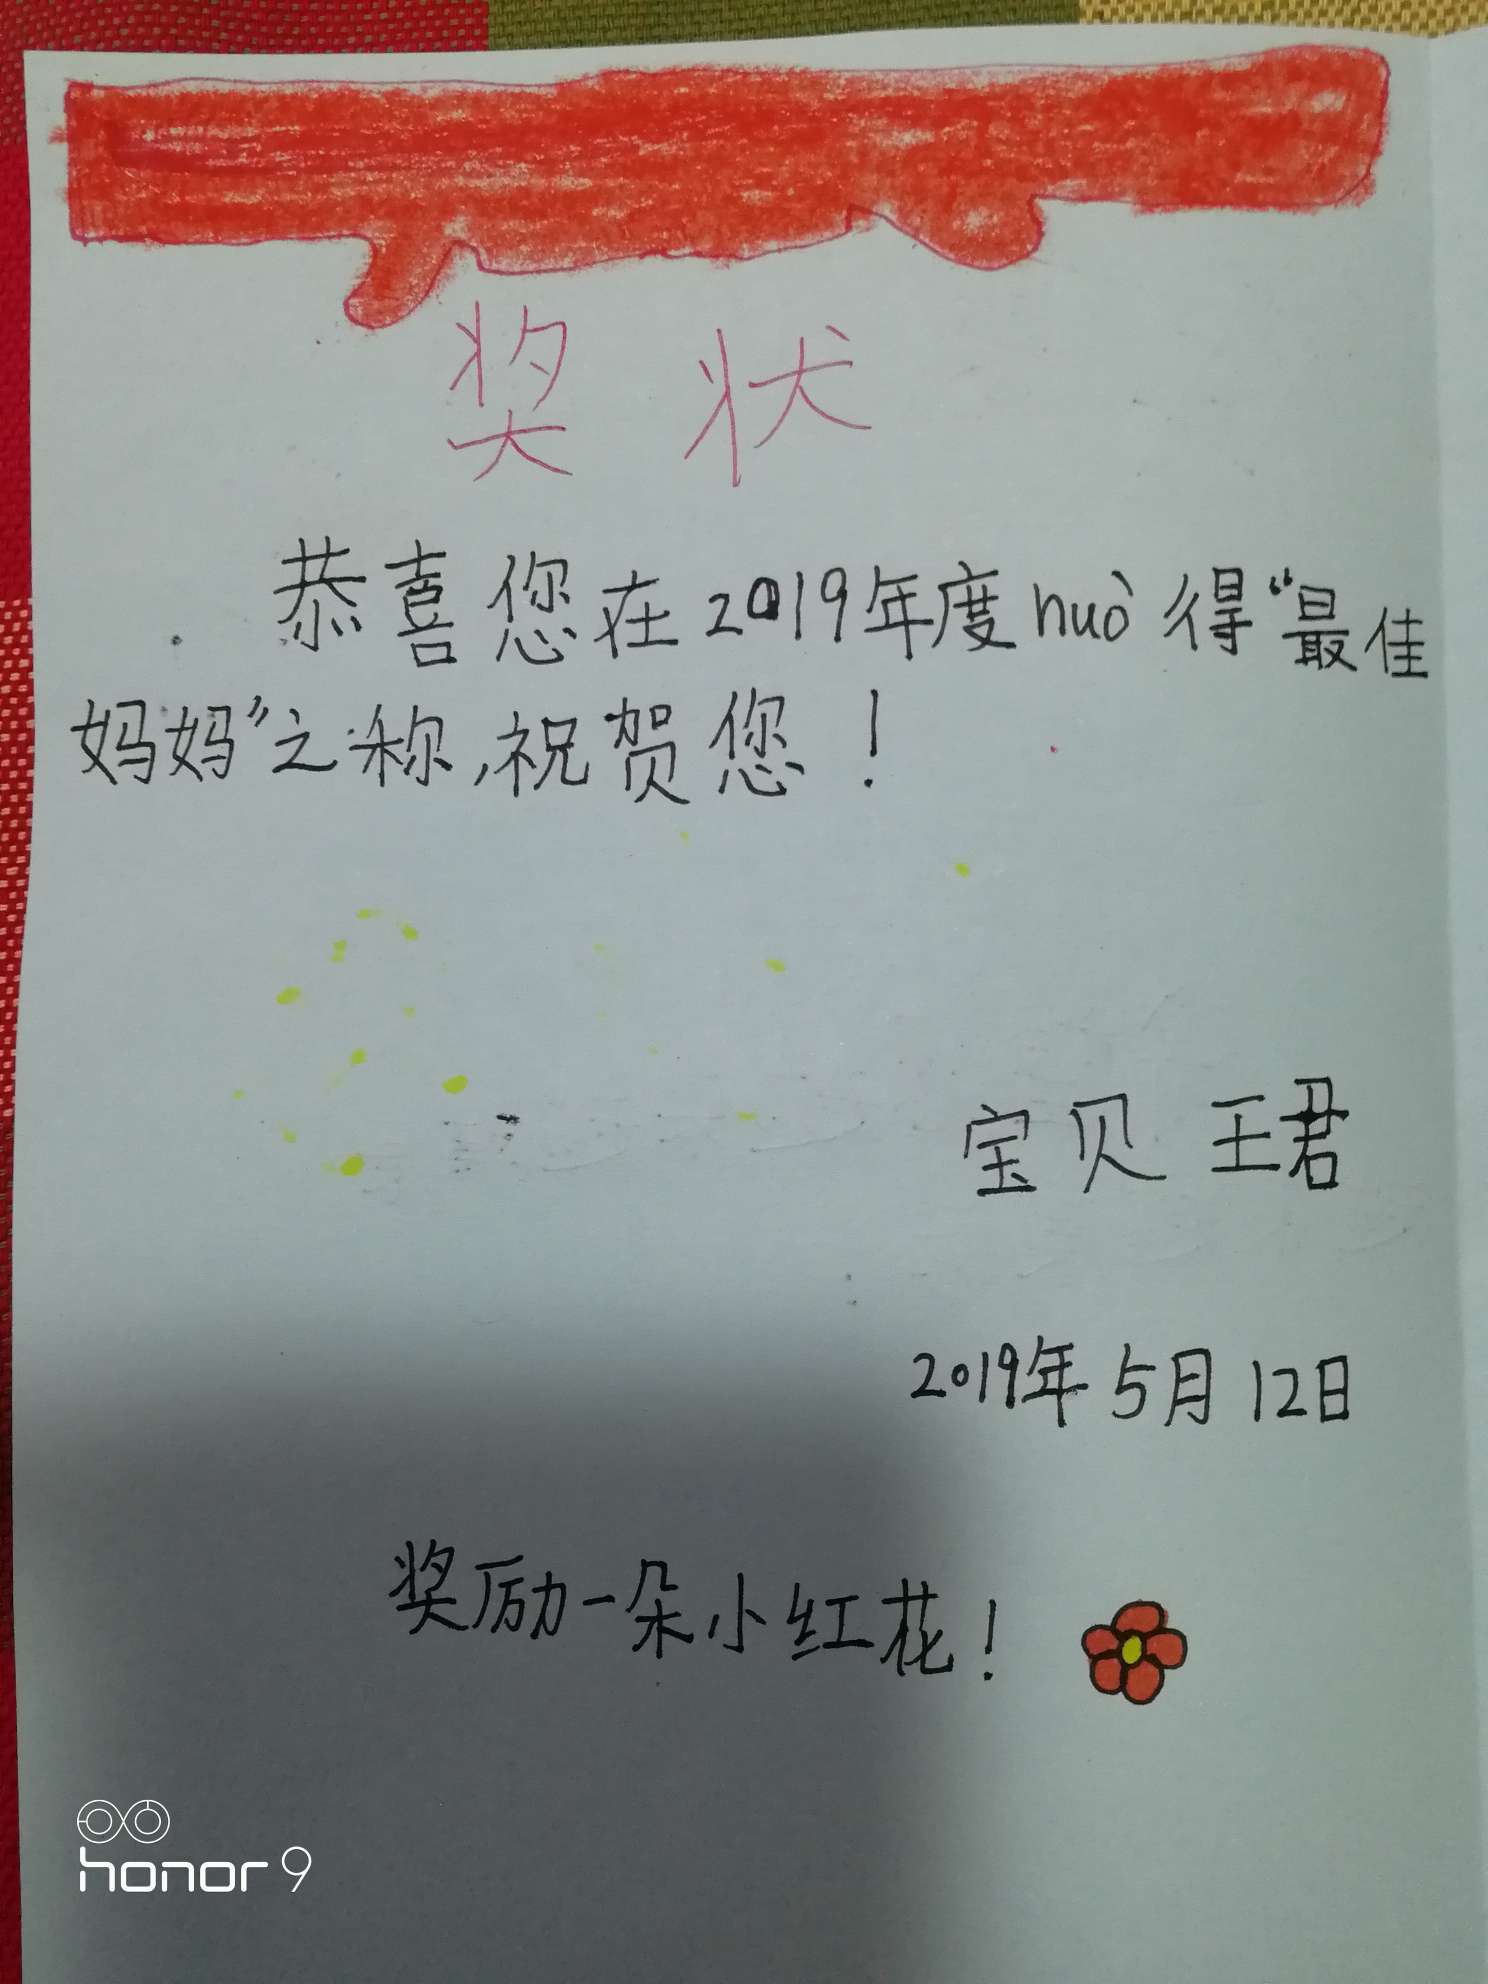 奖状
恭喜您在2019年度huò得“最佳
妈妈”之称,祝贺您！
宝贝 王君
2019年5月12日
奖励一朵小红花！
honor 9